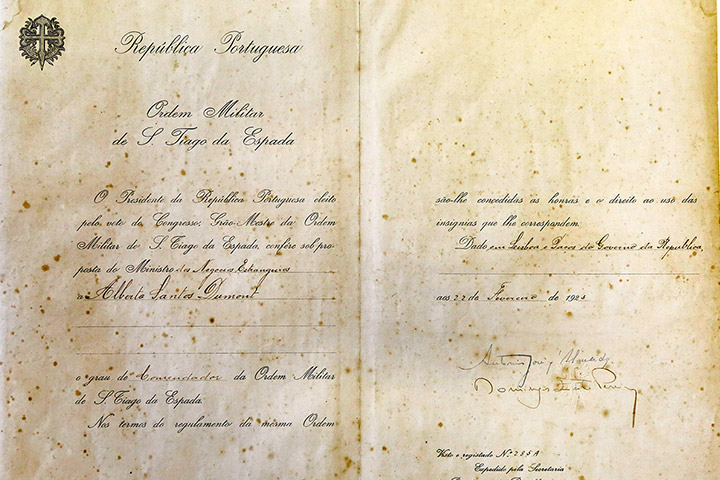 República Portuguesa
Ordem Militar
de S. Tiago da Espada
O Presidente da República Portuguesa eleito
pelo voto do Congresso, Grão-Mestre da Ordem
Militar de S. Tiago da Espada, confére sob pro-
posta do Ministro dos Negocios Estrangeiros
a Alberto Santos Dumont
o grau de Comendador da Ordem Militar
de S. Tiago da Espada.
Nos termos do regulamento da mesma Ordem
são-lhe concedidas as honras e o direito ao uso das
insignias que lhe correspondem.
Dado em Lisboa e Paços do Governo da Republica,
aos 22 de Fevereiro de 1923
Antonio José Almeida
Domingos Pereira
Visto e registado N.º 255A
Expedido pela Secretaria